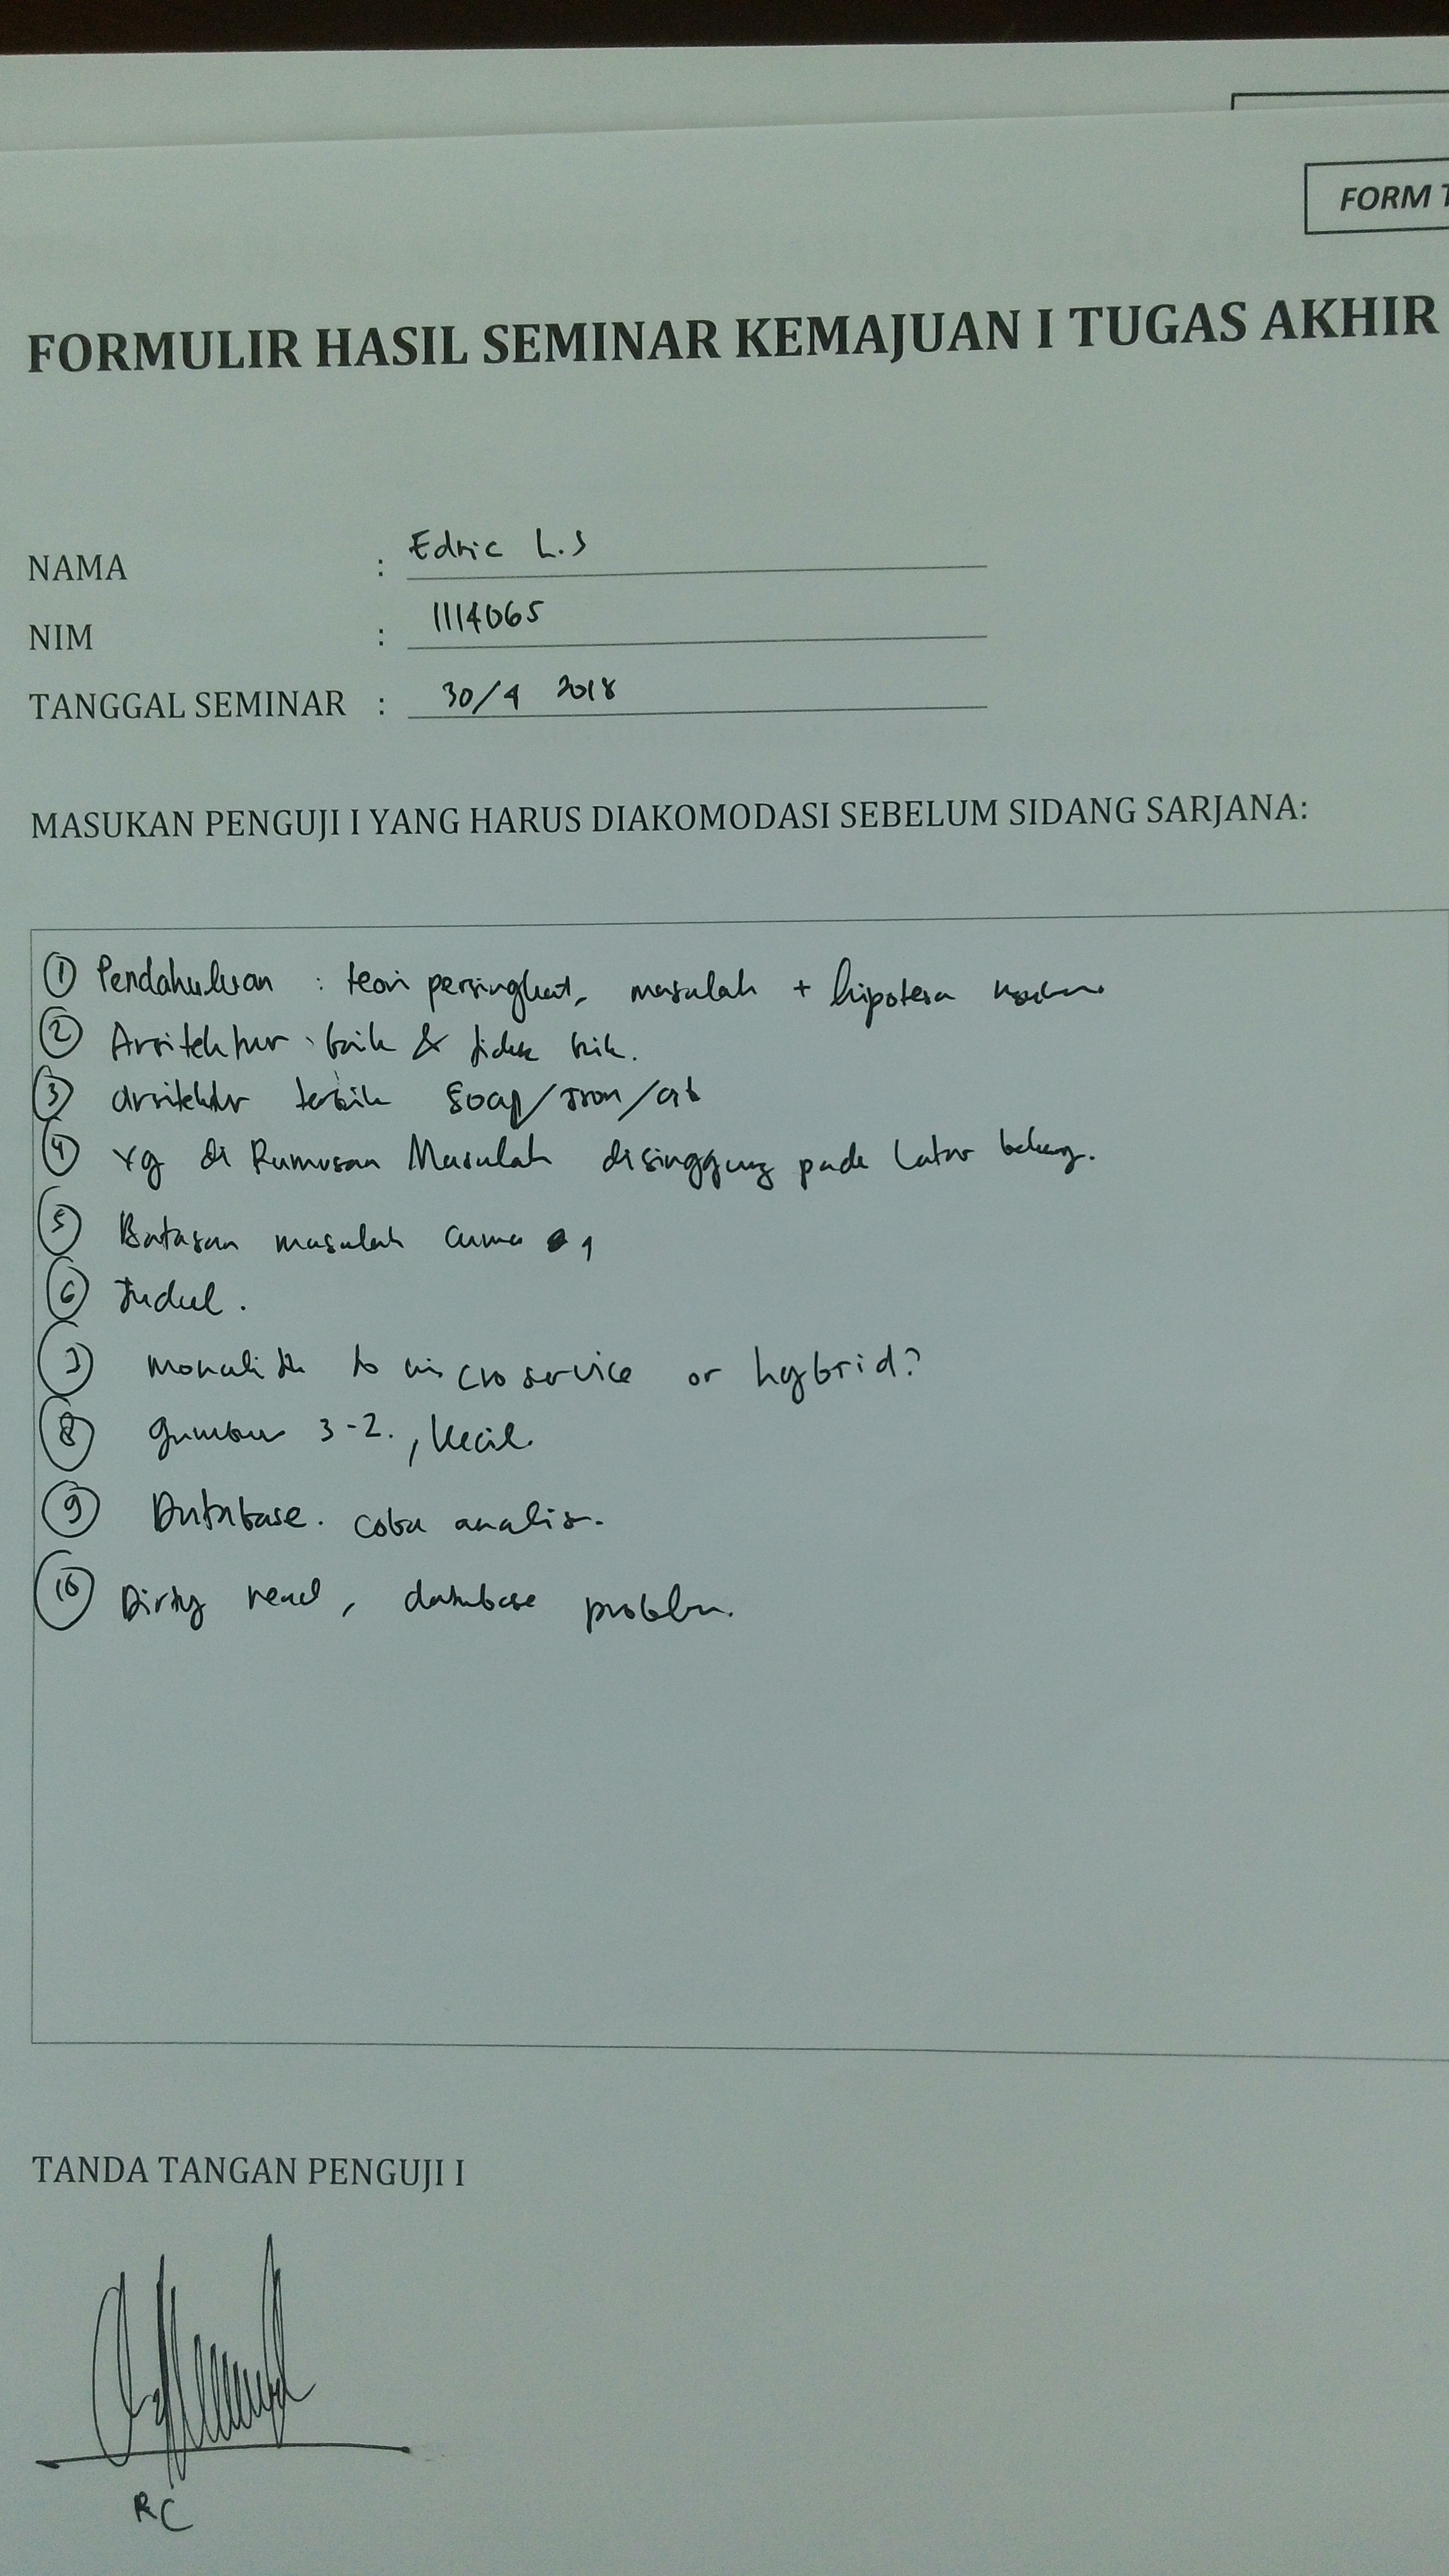 FORM T
FORMULIR HASIL SEMINAR KEMAJUAN I TUGAS AKHIR
NAMA : Edric L.S
NIM : 1114065
TANGGAL SEMINAR : 30/4 2018
MASUKAN PENGUJI I YANG HARUS DIAKOMODASI SEBELUM SIDANG SARJANA:
1 Pendahuluan : teori persingkat, masalah + hipotesa
2 Arsitektur : baik & tidak baik.
3 arsitektur terbaik soap/json/
4 Yg di Rumusan Masalah disinggung pada Latar belakang.
5 Batasan masalah cuma 1
6 Judul.
7 Monolith to microservice or hybrid?
8 gambar 3-2., kecil.
9 Database. coba analisa.
10 Dirty read, database problem.
TANDA TANGAN PENGUJI I
RC